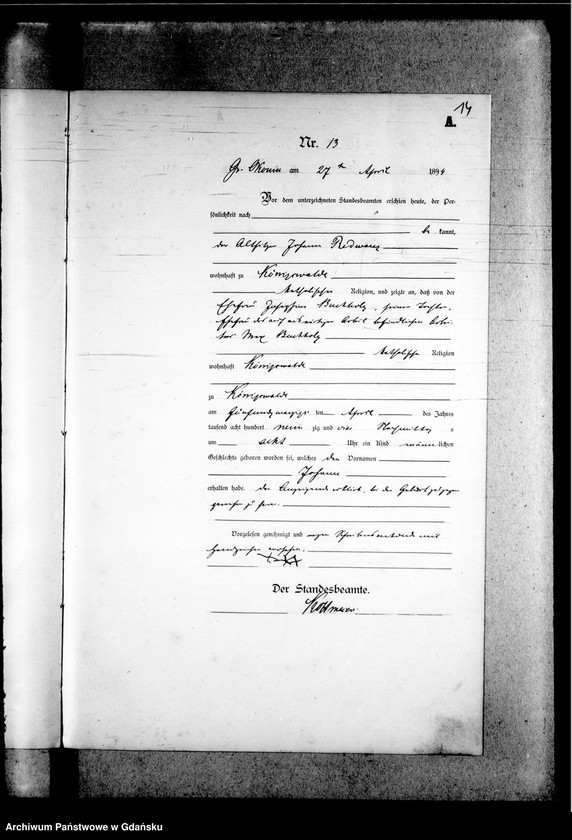 14
A.
Nr. 13
am 27 ten April 1894
Vor dem unterzeichneten Standesbeamten erschien heute, der Per-
sönlichkeit nach
be kannt,
der Altsitzer Johann Redwanz
wohnhaft zu Königswalde
katholischer Religion, und zeigte an, daß von der
Ehefrau Josephine Buchholz, seiner Tochter,
Ehefrau des auf auswärtiger Arbeit befindlichen Arbei-
ters Max Buchholz
katholischer Religion
wohnhaft Königswalde
zu Königswalde
am fünfundzwanzigsten April des Jahres
tausend acht hundert neunzig und vier Nachmittags
um acht Uhr ein Kind männlichen
Geschlechts geboren worden sei, welches den Vornamen
Johann
erhalten habe. der Anzeigende erklärte, bei der Geburt zugegen
gewesen zu sein.
Vorgelesen genehmigt und wegen Schreibensunkunde mit
Handzeichen versehen.
+++
Der Standesbeamte.
Archiwum Państwowe w Gdańsku